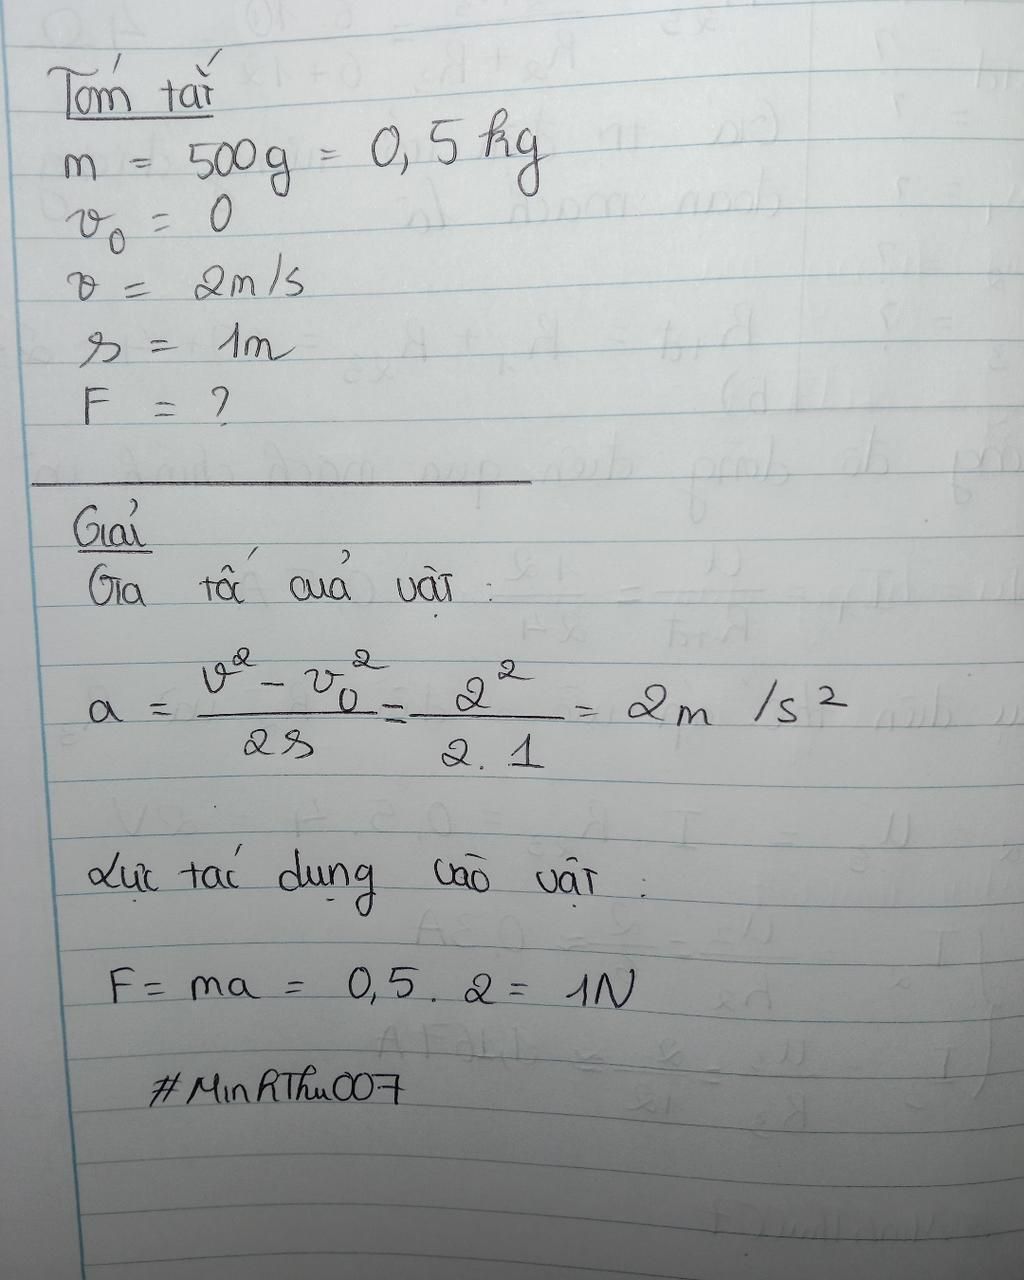 Tóm tắt
m = 500g = 0,5 kg
v₀ = 0
v = 2m/s
s = 1m
F = ?
Giải
Gia tốc của vật :
a = (v² - v₀²)/(2s) = 2²/(2.1) = 2m/s²
Lực tác dụng vào vật :
F = ma = 0,5 . 2 = 1N
#MinhThu007